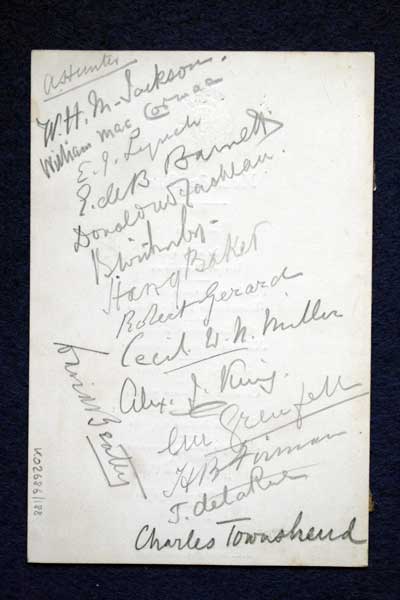 A. Hunter
W. H. M. Jackson.
William Mac Cormac
E. J. Lynch
E. de B. Barnett
Donald
B.
Harry Baker
Robert Gerard
Cecil W. N. Miller
Alex. J. King.
Grenfell
H B Firman
T. de la Rue
Charles Townshend
David Beatty
KO2686/188